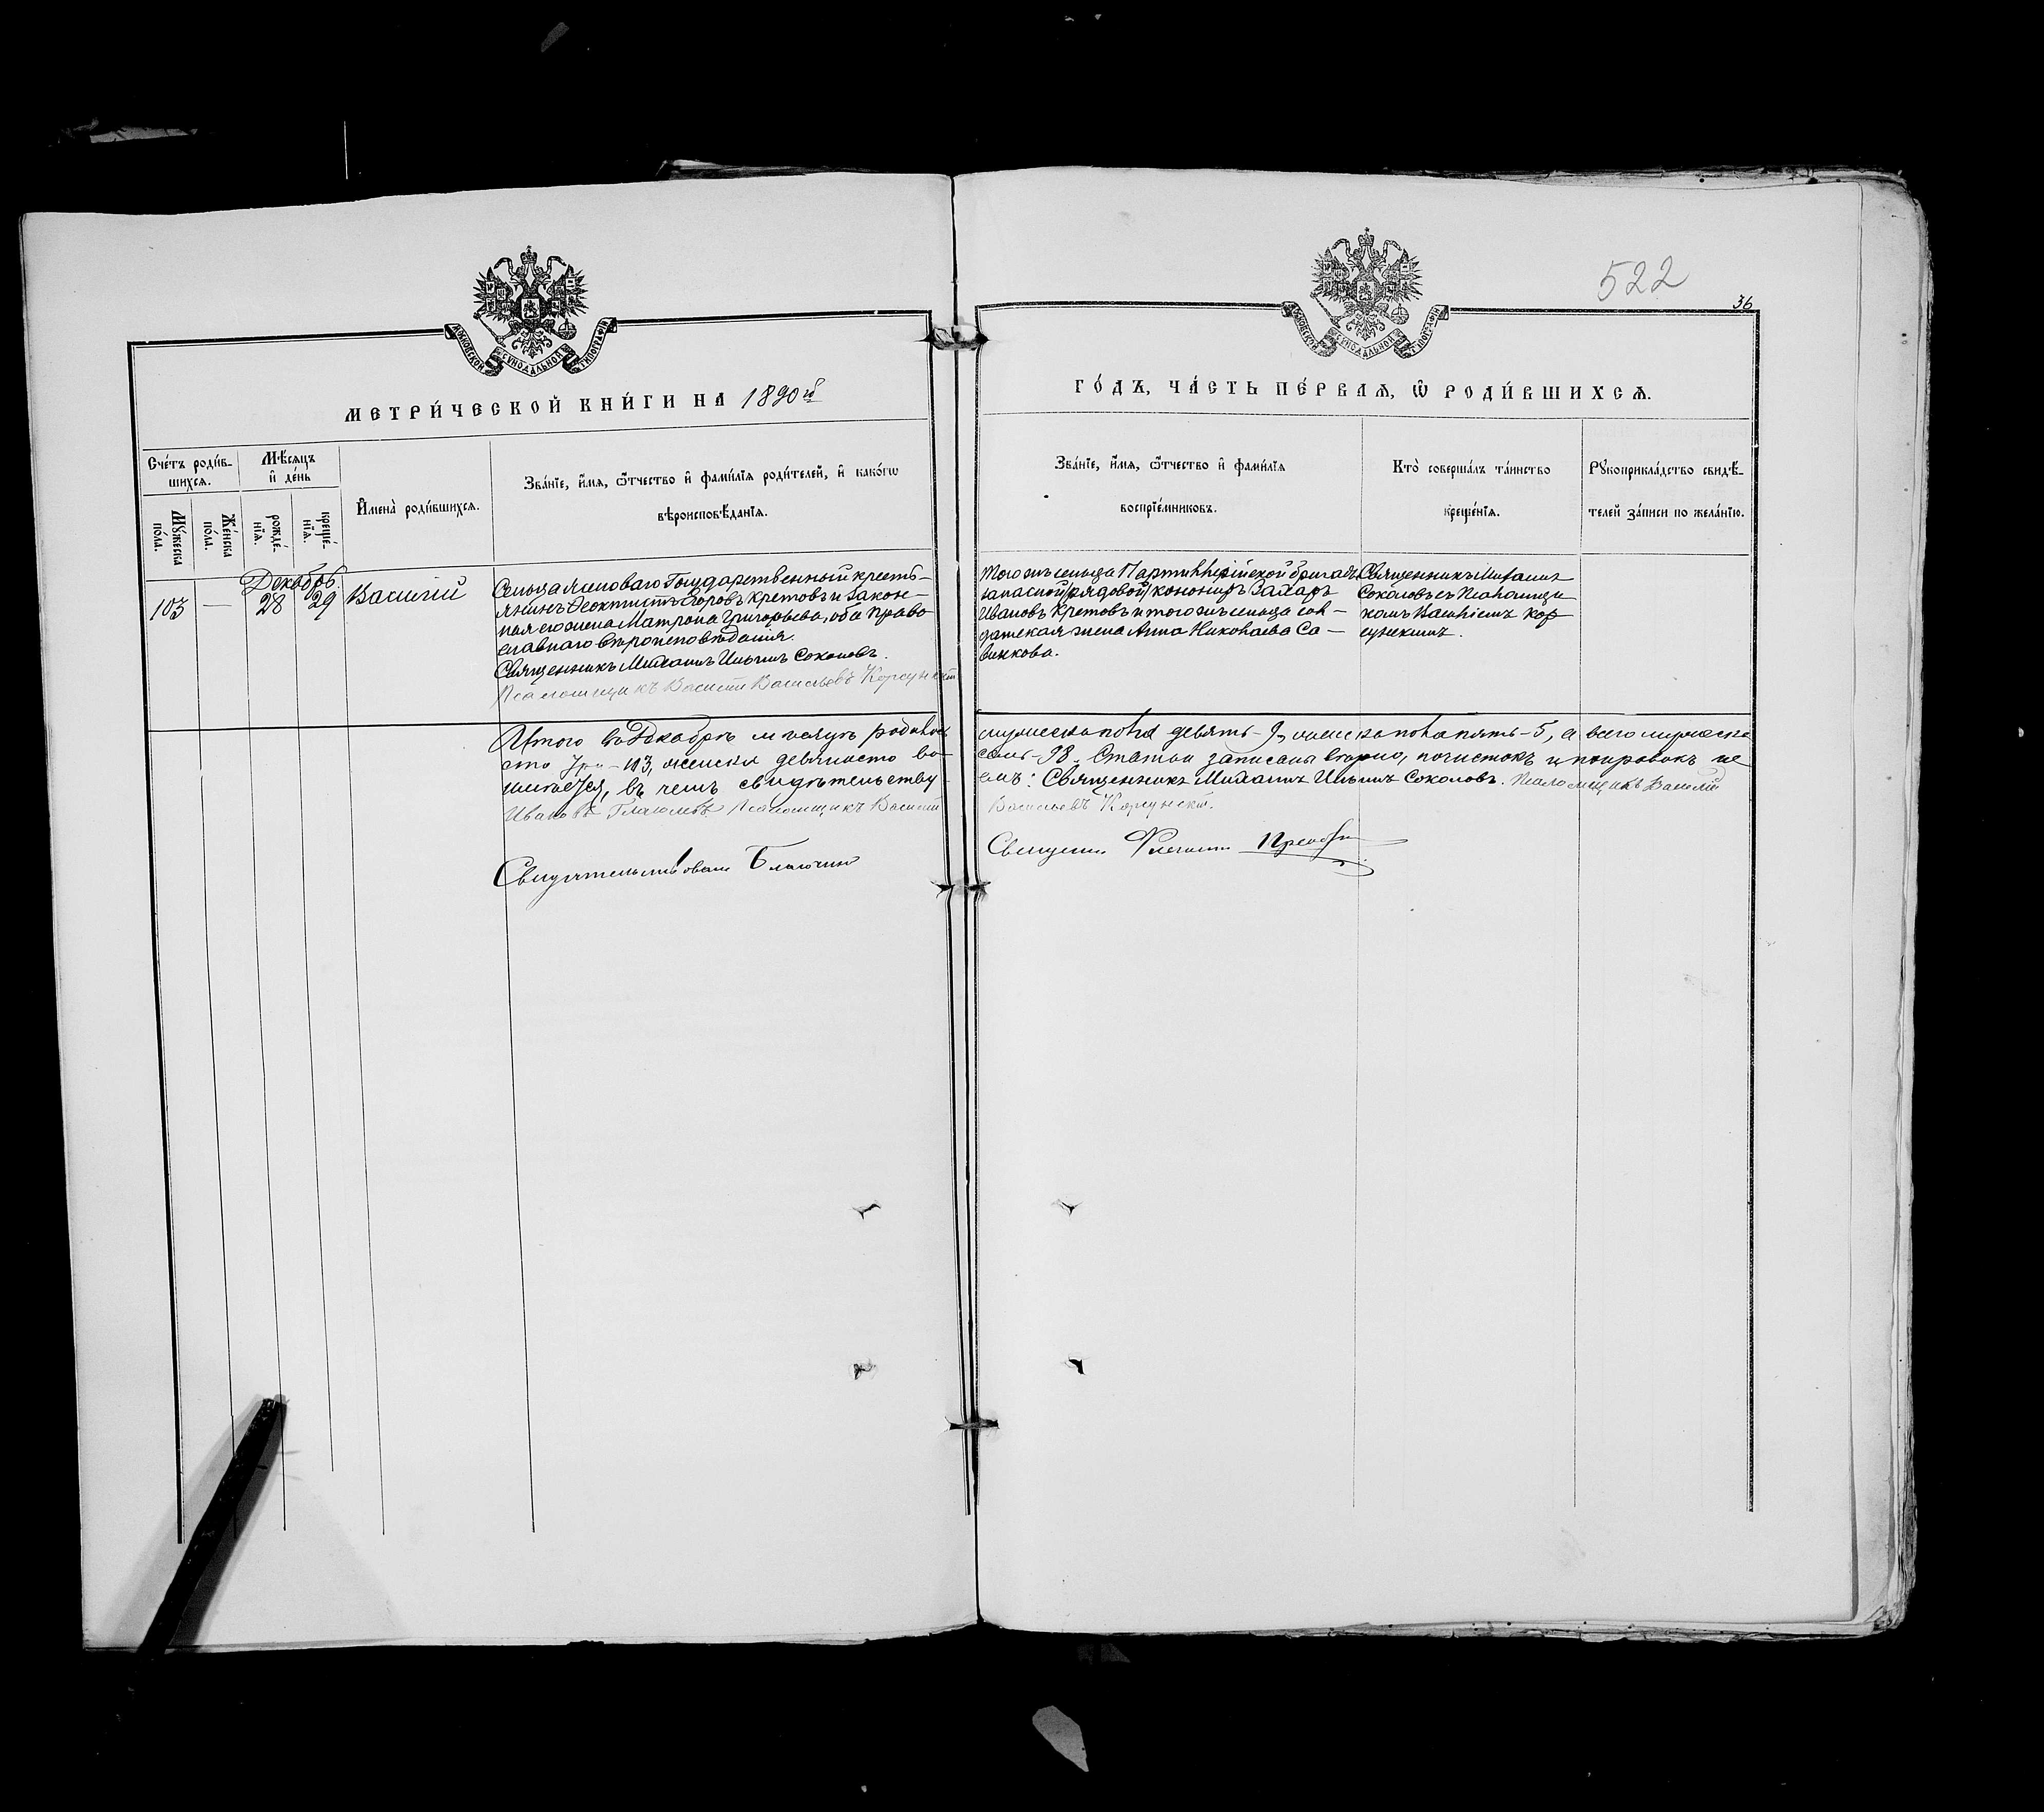 МОСКОВСКОЙ СѴНОДАЛЬНОЙ ТИПОГРАФІИ
МЕТРИ́ЧЕСКОЙ КНИ́ГИ НА 1890 й
Сче́тъ роди́в-
шихсѧ.
Мѣ́сѧцъ
и҆ де́нь
Мꙋ́жеска
по́ла.
Же́нска
по́ла.
рожде́-
нїѧ.
креще́-
нїѧ.
И҆мена̀ роди́вшихсѧ.
Зва́нїе, и҆́мѧ, ѻ҆́тчество и҆ фами́лїѧ роди́телей, и҆ како́гѡ
вѣроисповѣ́данїѧ.
Декабрь.
103 — 28 29 Василій
Сельца Государственный кресть-
янинъ Ѳеоктистъ Егоровъ Кретовъ и закон-
ная его жена Матрона Григорьева, оба право
славнаго вѣроисповѣданія.
Священникъ Михаилъ Ильинъ Соколовъ.
Псаломщикъ Василій Васильевъ Корсунскій
Итого въ Декабрѣ мѣсяцѣ родилось
сто три - 103, женска девяносто
въ чемъ свидѣтельству
Ивановъ Псаломщикъ Василій
Свидѣтельствовалъ Благочин
522
36
МОСКОВСКОЙ СѴНОДАЛЬНОЙ ТИПОГРАФІИ
ГО́ДЪ, ЧА́СТЬ ПЕ́РВАѦ, Ѡ҆ РОДИ́ВШИХСѦ.
Зва́нїе, и҆́мѧ, ѻ҆́тчество и҆ фами́лїѧ
воспрїе́мниковъ.
Кто̀ соверша́лъ та́инство
креще́нїѧ.
Рꙋкоприкла́дство свидѣ́-
телей за́писи по жела́нїю.
Того жъ сельца бригады
запасной (рядовой) конониръ Захаръ
Ивановъ Кретовъ и того жъ сельца сол-
датская жена Анна Николаева Са-
винкова.
Священникъ Михаилъ
Соколовъ съ Псаломщи
комъ Василіемъ Кор
сунскимъ.
мужеска пола девять - 9, женска пола пять - 5, а всего мужеска
98. Статьи записаны вѣрно, почистокъ и поправокъ не
Священникъ Михаилъ Ильинъ Соколовъ. Псаломщикъ Василій
Васильевъ Корсунскій.
Священ